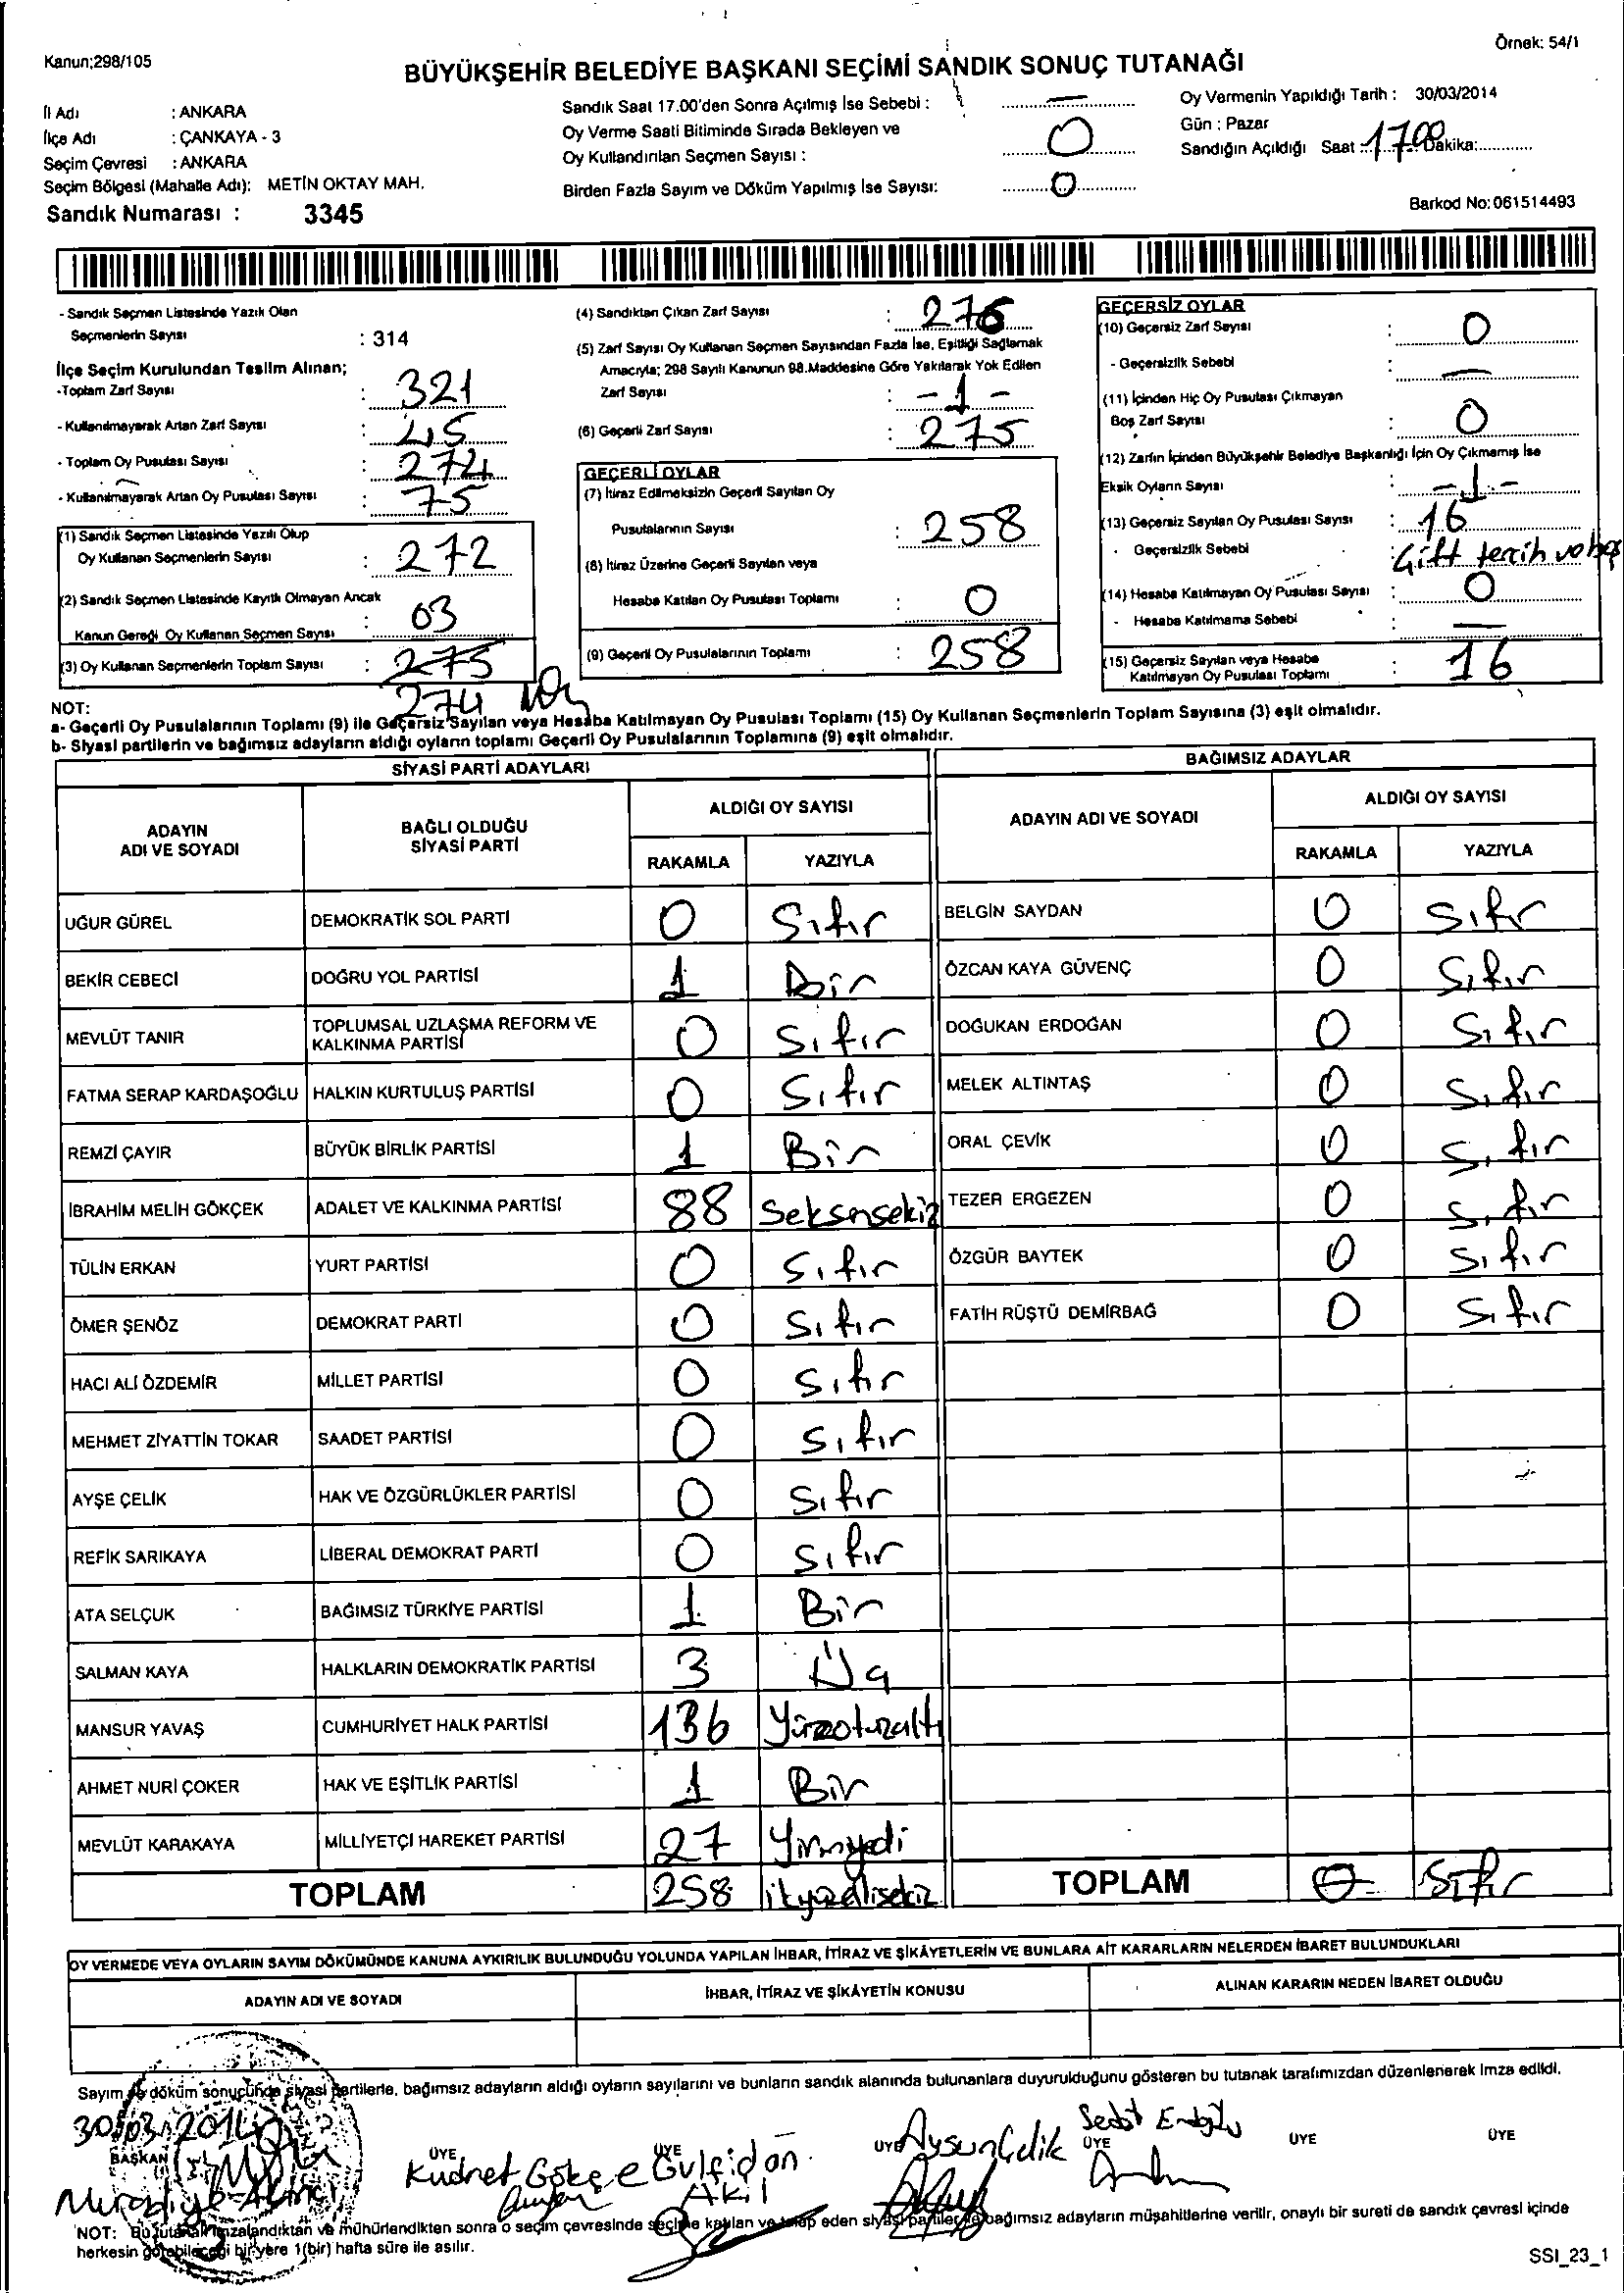 Kanun;298/105
Örnek: 54/1
BÜYÜKŞEHİR BELEDİYE BAŞKANI SEÇİMİ SANDIK SONUÇ TUTANAĞI
İl Adı : ANKARA
İlçe Adı : ÇANKAYA - 3
Seçim Çevresi : ANKARA
Seçim Bölgesi (Mahalle Adı): METİN OKTAY MAH.
Sandık Numarası : 3345
Sandık Saat 17.00'den Sonra Açılmış İse Sebebi : —
Oy Verme Saati Bitiminde Sırada Bekleyen ve
Oy Kullandırılan Seçmen Sayısı : 0
Birden Fazla Sayım ve Döküm Yapılmış İse Sayısı: 0
Oy Vermenin Yapıldığı Tarih : 30/03/2014
Gün : Pazar
Sandığın Açıldığı Saat : 17 00 Dakika:
Barkod No:061514493
- Sandık Seçmen Listesinde Yazılı Olan
Seçmenlerin Sayısı : 314
İlçe Seçim Kurulundan Teslim Alınan;
-Toplam Zarf Sayısı : 321
- Kullanılmayarak Artan Zarf Sayısı : 45
- Toplam Oy Pusulası Sayısı : 274
- Kullanılmayarak Artan Oy Pusulası Sayısı : 75
(1) Sandık Seçmen Listesinde Yazılı Olup
Oy Kullanan Seçmenlerin Sayısı : 272
(2) Sandık Seçmen Listesinde Kayıtlı Olmayan Ancak
Kanun Gereği Oy Kullanan Seçmen Sayısı : 03
(3) Oy Kullanan Seçmenlerin Toplam Sayısı : 275
274
(4) Sandıktan Çıkan Zarf Sayısı : 276
(5) Zarf Sayısı Oy Kullanan Seçmen Sayısından Fazla İse, Eşitliği Sağlamak
Amacıyla; 298 Sayılı Kanunun 98.Maddesine Göre Yakılarak Yok Edilen
Zarf Sayısı : - 1 -
(6) Geçerli Zarf Sayısı : 275
GEÇERLİ OYLAR
(7) İtiraz Edilmeksizin Geçerli Sayılan Oy
Pusulalarının Sayısı : 258
(8) İtiraz Üzerine Geçerli Sayılan veya
Hesaba Katılan Oy Pusulası Toplamı : 0
(9) Geçerli Oy Pusulalarının Toplamı : 258
GEÇERSİZ OYLAR
(10) Geçersiz Zarf Sayısı : 0
- Geçersizlik Sebebi : —
(11) İçinden Hiç Oy Pusulası Çıkmayan
Boş Zarf Sayısı : 0
(12) Zarfın İçinden Büyükşehir Belediye Başkanlığı İçin Oy Çıkmamış İse
Eksik Oyların Sayısı : - 1 -
(13) Geçersiz Sayılan Oy Pusulası Sayısı : 16
- Geçersizlik Sebebi : Çift tercih ve boş
(14) Hesaba Katılmayan Oy Pusulası Sayısı : 0
- Hesaba Katılmama Sebebi : —
(15) Geçersiz Sayılan veya Hesaba
Katılmayan Oy Pusulası Toplamı : 16
NOT:
a- Geçerli Oy Pusulalarının Toplamı (9) ile Geçersiz Sayılan veya Hesaba Katılmayan Oy Pusulası Toplamı (15) Oy Kullanan Seçmenlerin Toplam Sayısına (3) eşit olmalıdır.
b- Siyasi partilerin ve bağımsız adayların aldığı oyların toplamı Geçerli Oy Pusulalarının Toplamına (9) eşit olmalıdır.
SİYASİ PARTİ ADAYLARI
ADAYIN ADI VE SOYADI BAĞLI OLDUĞU SİYASİ PARTİ ALDIĞI OY SAYISI
RAKAMLA YAZIYLA
UĞUR GÜREL DEMOKRATİK SOL PARTİ 0 Sıfır
BEKİR CEBECİ DOĞRU YOL PARTİSİ 1 Bir
MEVLÜT TANIR TOPLUMSAL UZLAŞMA REFORM VE KALKINMA PARTİSİ 0 Sıfır
FATMA SERAP KARDAŞOĞLU HALKIN KURTULUŞ PARTİSİ 0 Sıfır
REMZİ ÇAYIR BÜYÜK BİRLİK PARTİSİ 1 Bir
İBRAHİM MELİH GÖKÇEK ADALET VE KALKINMA PARTİSİ 88 Seksensekiz
TÜLİN ERKAN YURT PARTİSİ 0 Sıfır
ÖMER ŞENÖZ DEMOKRAT PARTİ 0 Sıfır
HACI ALİ ÖZDEMİR MİLLET PARTİSİ 0 Sıfır
MEHMET ZİYATTİN TOKAR SAADET PARTİSİ 0 Sıfır
AYŞE ÇELİK HAK VE ÖZGÜRLÜKLER PARTİSİ 0 Sıfır
REFİK SARIKAYA LİBERAL DEMOKRAT PARTİ 0 Sıfır
ATA SELÇUK BAĞIMSIZ TÜRKİYE PARTİSİ 1 Bir
SALMAN KAYA HALKLARIN DEMOKRATİK PARTİSİ 3 Üç
MANSUR YAVAŞ CUMHURİYET HALK PARTİSİ 136 Yüzotuzaltı
AHMET NURİ ÇOKER HAK VE EŞİTLİK PARTİSİ 1 Bir
MEVLÜT KARAKAYA MİLLİYETÇİ HAREKET PARTİSİ 27 Yirmiyedi
TOPLAM 258 ikiyüzellisekiz
BAĞIMSIZ ADAYLAR
ADAYIN ADI VE SOYADI ALDIĞI OY SAYISI
RAKAMLA YAZIYLA
BELGİN SAYDAN 0 Sıfır
ÖZCAN KAYA GÜVENÇ 0 Sıfır
DOĞUKAN ERDOĞAN 0 Sıfır
MELEK ALTINTAŞ 0 Sıfır
ORAL ÇEVİK 0 Sıfır
TEZER ERGEZEN 0 Sıfır
ÖZGÜR BAYTEK 0 Sıfır
FATİH RÜŞTÜ DEMİRBAĞ 0 Sıfır
TOPLAM 0 Sıfır
OY VERMEDE VEYA OYLARIN SAYIM DÖKÜMÜNDE KANUNA AYKIRILIK BULUNDUĞU YOLUNDA YAPILAN İHBAR, İTİRAZ VE ŞİKÂYETLERİN VE BUNLARA AİT KARARLARIN NELERDEN İBARET BULUNDUKLARI
ADAYIN ADI VE SOYADI İHBAR, İTİRAZ VE ŞİKÂYETİN KONUSU ALINAN KARARIN NEDEN İBARET OLDUĞU
Sayım ve döküm sonucunda siyasi partilerle, bağımsız adayların aldığı oyların sayılarını ve bunların sandık alanında bulunanlara duyurulduğunu gösteren bu tutanak tarafımızdan düzenlenerek imza edildi.
30.03.2014
BAŞKAN ÜYE ÜYE ÜYE ÜYE ÜYE ÜYE
Kudret Gökçe Gülfidan Akıl Aysun Çelik Sedat
NOT: Bu tutanak imzalandıktan ve mühürlendikten sonra o seçim çevresinde seçime katılan ve talep eden siyasi partiler ile bağımsız adayların müşahitlerine verilir, onaylı bir sureti de sandık çevresi içinde
herkesin görebileceği bir yere 1(bir) hafta süre ile asılır.
SSI_23_1